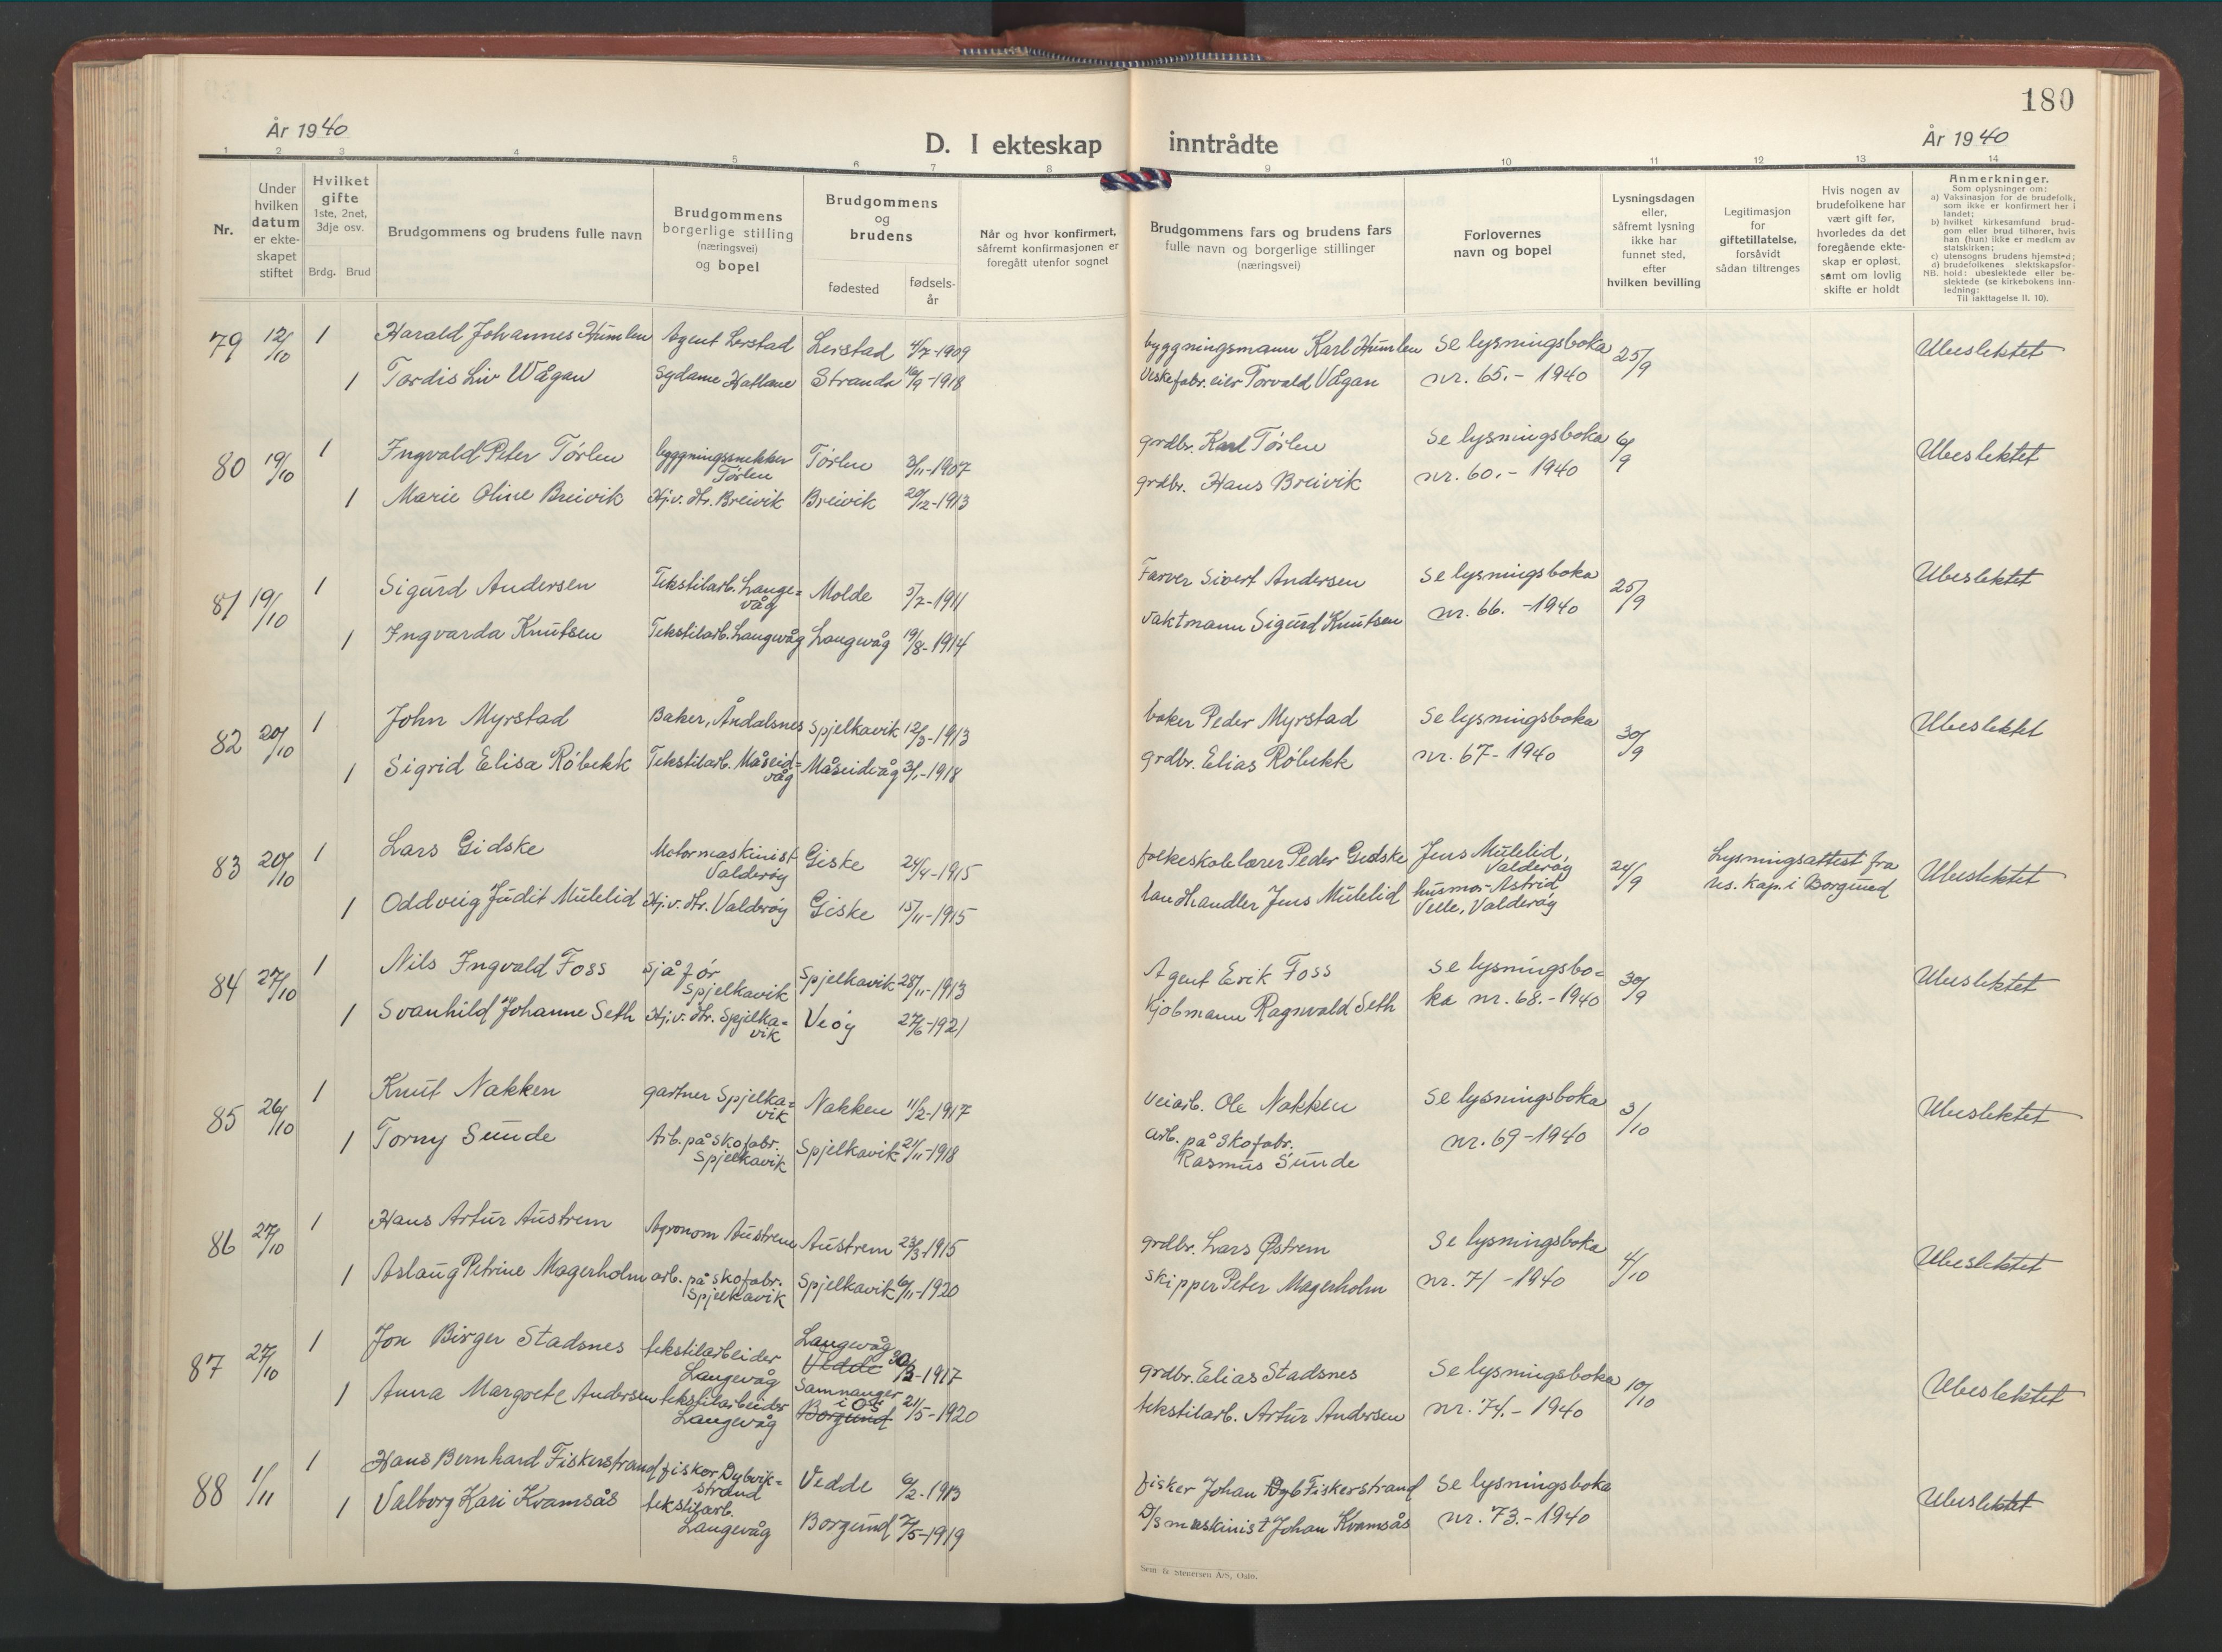 180
År 1940
D. I ekteskap inntrådte
År 1940
1 2 3 4 5 6 7 8 9 10 11 12 13 14
Nr.
Under hvilken datum er ekteskapet stiftet
Hvilket gifte
1ste, 2net, 3dje osv.
Brdg. Brud
Brudgommens og brudens fulle navn
Brudgommens borgerlige stilling (næringsvei) og bopel
Brudgommens og brudens
fødested
fødsels-år
Når og hvor konfirmert, såfremt konfirmasjonen er foregått utenfor sognet
Brudgommens fars og brudens fars fulle navn og borgerlige stillinger (næringsvei)
Forlovernes navn og bopel
Lysningsdagen eller, såfremt lysning ikke har funnet sted, efter hvilken bevilling
Legitimasjon for giftetillatelse, forsåvidt sådan tiltrenges
Hvis nogen av brudefolkene har vært gift før, hvorledes da det foregående ekteskap er opløst, samt om lovlig skifte er holdt
Anmerkninger.
Som oplysninger om:
a) Vaksinasjon for de brudefolk, som ikke er konfirmert her i landet;
b) hvilket kirkesamfund brudgom eller brud tilhører, hvis han (hun) ikke er medlem av statskirken;
c) utensogns brudens hjemsted;
d) brudefolkenes slektskapsforhold: ubeslektede eller beslektede (se kirkebokens innledning:
NB.
Til iakttagelse II. 10).
79 12/10 1 Harald Johannes Humlen Agent Lerstad Lerstad 4/7-1909 byggningsmann Karl Humlen Se lysningsboka 25/9 Ubeslektet
1 Tordis Liv Wågan Sydame Hatlane Stranda 16/9-1918 Veskefabr. eier Torvald Vågan nr. 65.- 1940
80 19/10 1 Ingvald Peter Tørlen byggningssnekker Tørlen Tørlen 3/11-1907 grdbr. Karl Tørlen Se lysningsboka 6/9 Ubeslektet
1 Marie Oline Breivik Hj.v. Hr. Breivik Breivik 20/12-1913 grdbr. Hans Breivik nr. 60.- 1940
81 19/10 1 Sigurd Andersen Tekstilarb. Lange=
våg Molde 5/7-1911 Farver Sivert Andersen Se lysningsboka 25/9 Ubeslektet
1 Ingvarda Knutsen Tekstilarb. Langevåg Langevåg 19/8-1914 Vaktmann Sigurd Knutsen nr. 66. -1940
82 20/10 1 John Myrstad Baker, Åndalsnes Spjelkavik 12/3-1913 baker Peder Myrstad Se lysningsboka 30/9 Ubeslektet
1 Sigrid Elisa Røbekk Tekstilarb. Måseid=
våg Måseidvåg 3/1-1918 grdbr. Elias Røbekk nr. 67- 1940
83 20/10 1 Lars Gidske Motormaskinist
Valderøy Giske 24/4-1915 folkeskolelærer Peder Gidske Jens Mulelid,
Valderøy 24/9 Lysningsattest fra
res. kap. i Borgund Ubeslektet
1 Oddveig Judit Mulelid Hj.v. Hr. Valderøy Giske 15/11-1915 landhandler Jens Mulelid husmor Astrid
Velle, Valderøy
84 27/10 1 Nils Ingvald Foss Sjåfør
Spjelkavik Spjelkavik 28/11-1913 Agent Erik Foss Se lysningsbo=
ka nr. 68.-1940 30/9 Ubeslektet
1 Svanhild Johanne Seth Hj.v. Hr. Spjelka=
vik Veøy 27/6-1921 Kjøbmann Ragnvald Seth
85 26/10 1 Knut Nakken gartner Spjelka=
vik Nakken 11/2-1917 Veiarb. Ole Nakken Se lysningsboka 3/10 Ubeslektet
1 Torny Sunde Arb. på skofabr.
Spjelkavik Spjelkavik 21/11-1918 arb. på skofabr.
Rasmus Sunde nr. 69-1940
86 27/10 1 Hans Artur Austrem Agronom Austrem Austrem 23/3-1915 grdbr. Lars Østrem Se lysningsboka 4/10 Ubeslektet
1 Aslaug Petrine Magerholm arb. på skofabr.
Spjelkavik Spjelkavik 6/11-1920 Skipper Peter Magerholm nr. 71 -1940
87 27/10 1 Jon Birger Stadsnes tekstilarbeider
Langevåg Langevåg
Vedde 30/3-1917 grdbr. Elias Stadsnes Se lysningsboka 10/10 Ubeslektet
1 Anna Margrete Andersen tekstilarbeider
Langevåg Samnanger
i Os
Borgund 21/5-1920 tekstilarb. Artur Andersen nr. 74.- 1940
88 1/11 1 Hans Bernhard Fiskerstrand fisker, Dybvik=
strand Vedde 6/2-1913 fisker Johan Dyb Fiskerstrand Se lysningsboka Ubeslektet
1 Valborg Kari Kvamsås tekstilarb.
Langevåg Borgund 7/5-1919 D/s maskinist Johan Kvamsås nr. 73.- 1940
Sem & Stenersen A/S, Oslo.